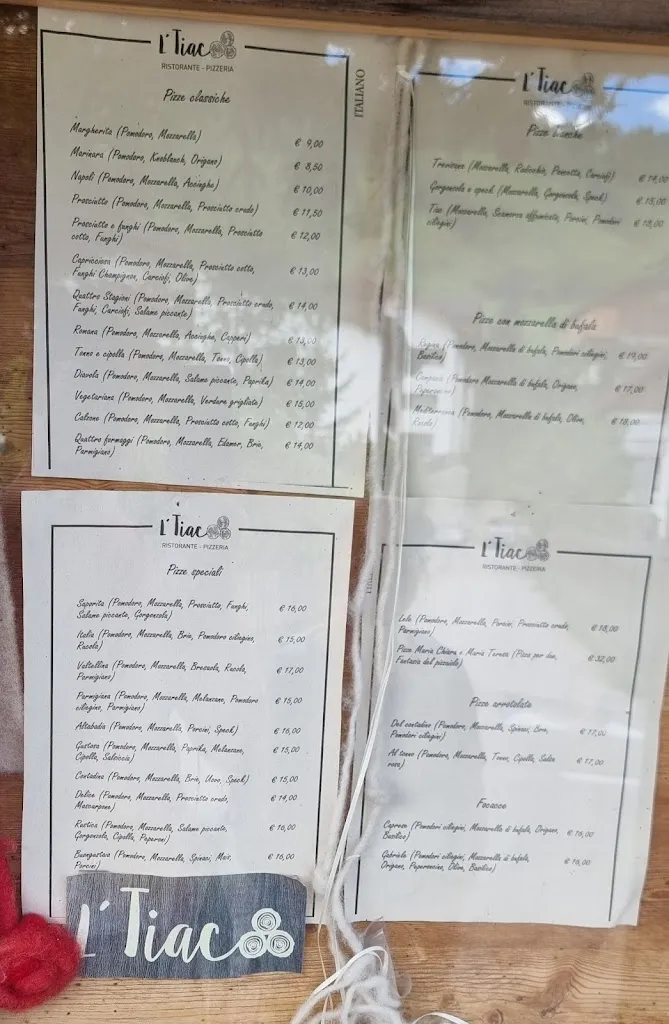 L'Tiac
RISTORANTE - PIZZERIA
ITALIANO
Pizze classiche
Margherita (Pomodoro, Mozzarella) € 9,00
Marinara (Pomodoro, Knoblauch, Origano) € 8,50
Napoli (Pomodoro, Mozzarella, Acciughe) € 10,00
Prosciutto (Pomodoro, Mozzarella, Prosciutto crudo) € 11,50
Prosciutto e funghi (Pomodoro, Mozzarella, Prosciutto
cotto, Funghi) € 12,00
Capricciosa (Pomodoro, Mozzarella, Prosciutto cotto,
Funghi Champignon, Carciofi, Olive) € 13,00
Quattro Stagioni (Pomodoro, Mozzarella, Prosciutto crudo,
Funghi, Carciofi, Salame piccante) € 14,00
Romana (Pomodoro, Mozzarella, Acciughe, Capperi) € 13,00
Tonno e cipolla (Pomodoro, Mozzarella, Tonno, Cipolla) € 13,00
Diavola (Pomodoro, Mozzarella, Salame piccante, Paprika) € 14,00
Vegetariana (Pomodoro, Mozzarella, Verdura grigliata) € 15,00
Calzone (Pomodoro, Mozzarella, Prosciutto cotto, Funghi) € 12,00
Quattro formaggi (Pomodoro, Mozzarella, Edamer, Brie,
Parmigiano) € 14,00
L'Tiac
RISTORANTE - PIZZERIA
Pizze bianche
Trevisana (Mozzarella, Radicchio, Pancetta, Carciofi) € 14,00
Gorgonzola e speck (Mozzarella, Gorgonzola, Speck) € 15,00
Tiac (Mozzarella, Scamorza affumicata, Porcini, Pomodori
ciliegini) € 18,00
Pizze con mozzarella di bufala
Regina (Pomodoro, Mozzarella di bufala, Pomodori ciliegini,
Basilico) € 19,00
Campana (Pomodoro Mozzarella di bufala, Origano,
Peperoncino) € 17,00
Mediterranea (Pomodoro, Mozzarella di bufala, Olive,
Rucola) € 18,00
L'Tiac
RISTORANTE - PIZZERIA
Pizze speciali
Saporita (Pomodoro, Mozzarella, Prosciutto, Funghi,
Salame piccante, Gorgonzola) € 16,00
Italia (Pomodoro, Mozzarella, Brie, Pomodoro ciliegino,
Rucola) € 15,00
Valtellina (Pomodoro, Mozzarella, Bresaola, Rucola,
Parmigiano) € 17,00
Parmigiana (Pomodoro, Mozzarella, Melanzane, Pomodoro
ciliegino, Parmigiano) € 15,00
Altabadia (Pomodoro, Mozzarella, Porcini, Speck) € 16,00
Gustosa (Pomodoro, Mozzarella, Paprika, Melanzane,
Cipolla, Salsiccia) € 15,00
Contadina (Pomodoro, Mozzarella, Brie, Uovo, Speck) € 15,00
Delice (Pomodoro, Mozzarella, Prosciutto crudo,
Mascarpone) € 14,00
Rustica (Pomodoro, Mozzarella, Salame piccante,
Gorgonzola, Cipolla, Peperoni) € 16,00
Buongustaio (Pomodoro, Mozzarella, Spinaci, Mais,
Porcini) € 16,00
L'Tiac
L'Tiac
RISTORANTE - PIZZERIA
Lola (Pomodoro, Mozzarella, Porcini, Prosciutto crudo,
Parmigiano) € 18,00
Pizza Maria Chiara e Maria Teresa (Pizza per due,
Fantasia del pizzaiolo) € 32,00
Pizze arrotolate
Del contadino (Pomodoro, Mozzarella, Spinaci, Brie,
Pomodori ciliegini) € 17,00
Al tonno (Pomodoro, Mozzarella, Tonno, Cipolla, Salsa
rosa) € 17,00
Focacce
Caprese (Pomodori ciliegini, Mozzarella di bufala, Origano,
Basilico) € 16,00
Gabriele (Pomodori ciliegini, Mozzarella di bufala,
Origano, Peperoncino, Olive, Basilico) € 16,00